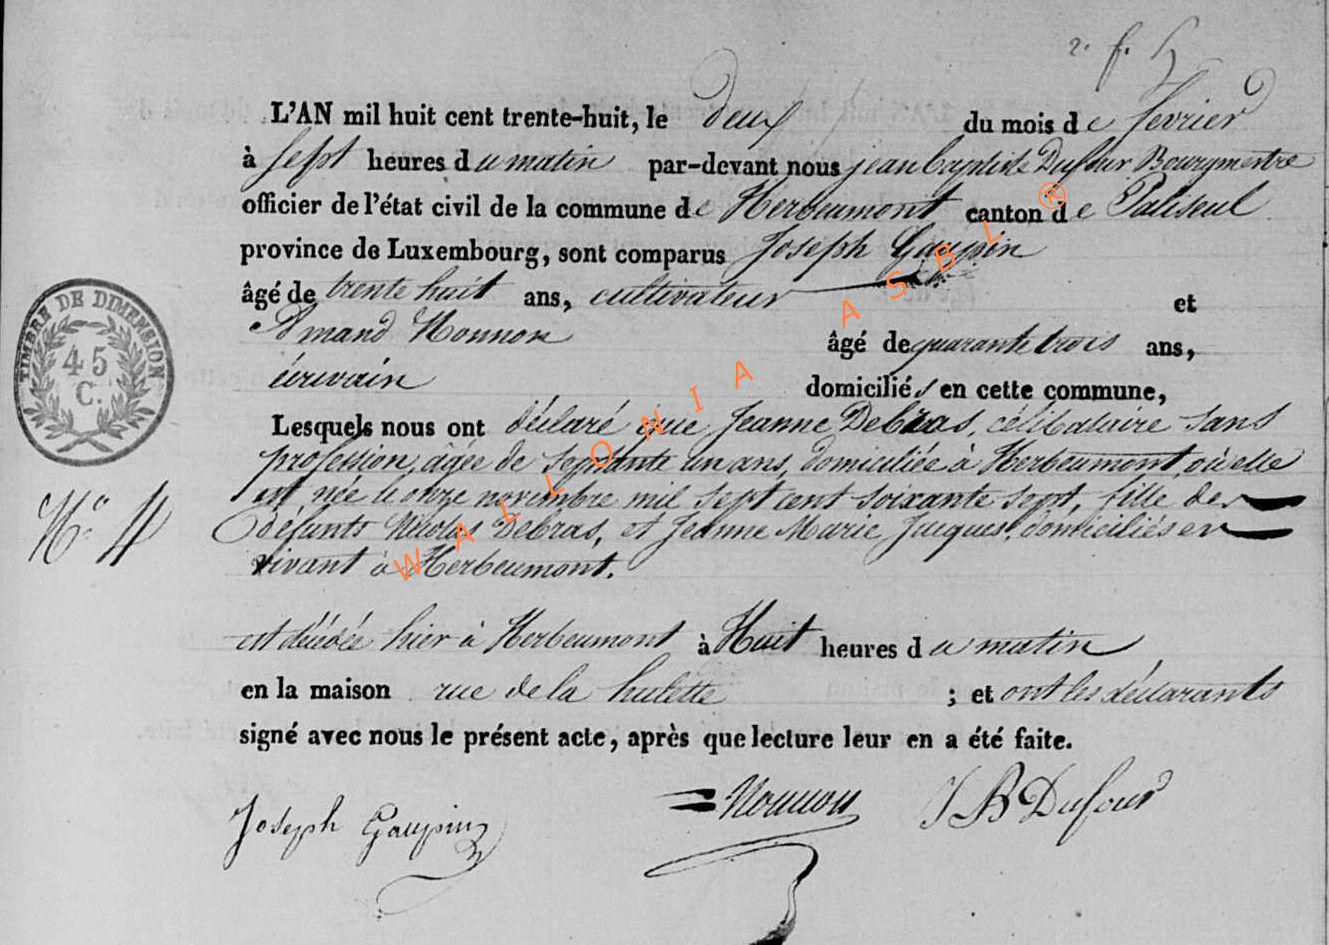 2. f. 5
L'AN mil huit cent trente-huit, le deux du mois de fevrier
à sept heures du matin par-devant nous jean baptiste Dufour Bourgmestre
officier de l'état civil de la commune de Herbeumont canton de Paliseul
province de Luxembourg, sont comparus Joseph Gaupin
âgé de trente huit ans, cultivateur et
Amand Nonnon âgé de quarante trois ans,
écrivain domiciliés en cette commune,
Lesquels nous ont déclaré que Jeanne Debras, célibataire sans
profession, âgée de septante un ans, domiciliée à Herbeumont, où elle
est née le onze novembre mil sept cent soixante sept, fille des
défunts Nicolas Debras, et Jeanne Marie Jacques, domiciliés en
vivant à Herbeumont.
est décédée hier à Herbeumont à Huit heures du matin
en la maison rue de la hulette ; et ont les déclarants
signé avec nous le présent acte, après que lecture leur en a été faite.
Joseph Gaupin Nonnon J B Dufour
N° 4
TIMBRE DE DIMENSION
45
C.
WALLONIA ASBL ®